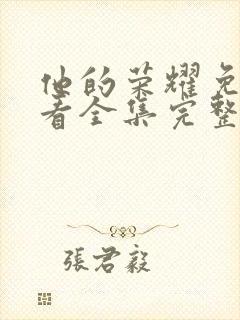 他的荣耀免
看全集完整
張君毅